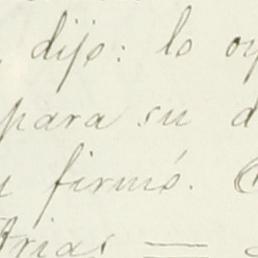 dijo: lo
para su
firmó.
Arias —